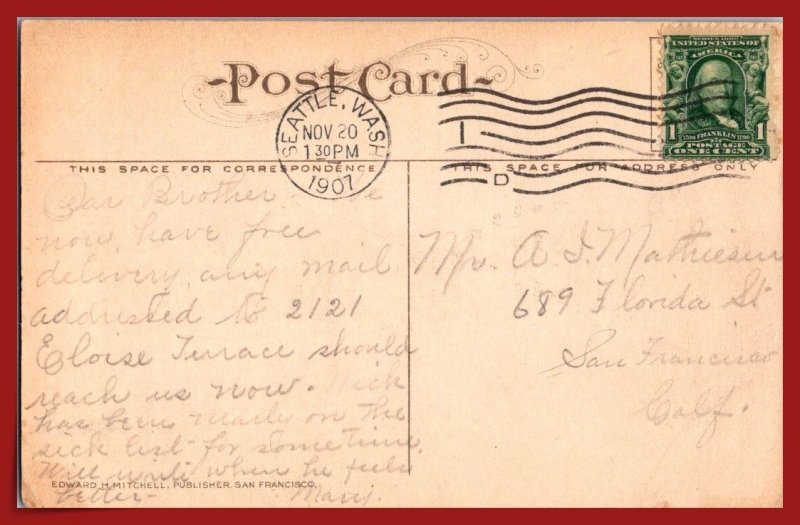 Post Card
SERIES 1902
UNITED STATES OF
AMERICA
1 FRANKLIN 1
POSTAGE
ONE CENT
SEATTLE, WASH.
NOV 20
1 30 PM
1907
D
THIS SPACE FOR CORRESPONDENCE
THIS SPACE FOR ADDRESS ONLY
Dear Brother
now have free
delivery any mail
addressed to 2121
Eloise Terrace should
reach us now. Nick
has been nearly on the
sick list for sometime.
Will write when he feels
better-
Mary.
Mr. A I Mathiesen
689 Florida St
San Francisco
Calf.
EDWARD H. MITCHELL, PUBLISHER, SAN FRANCISCO.